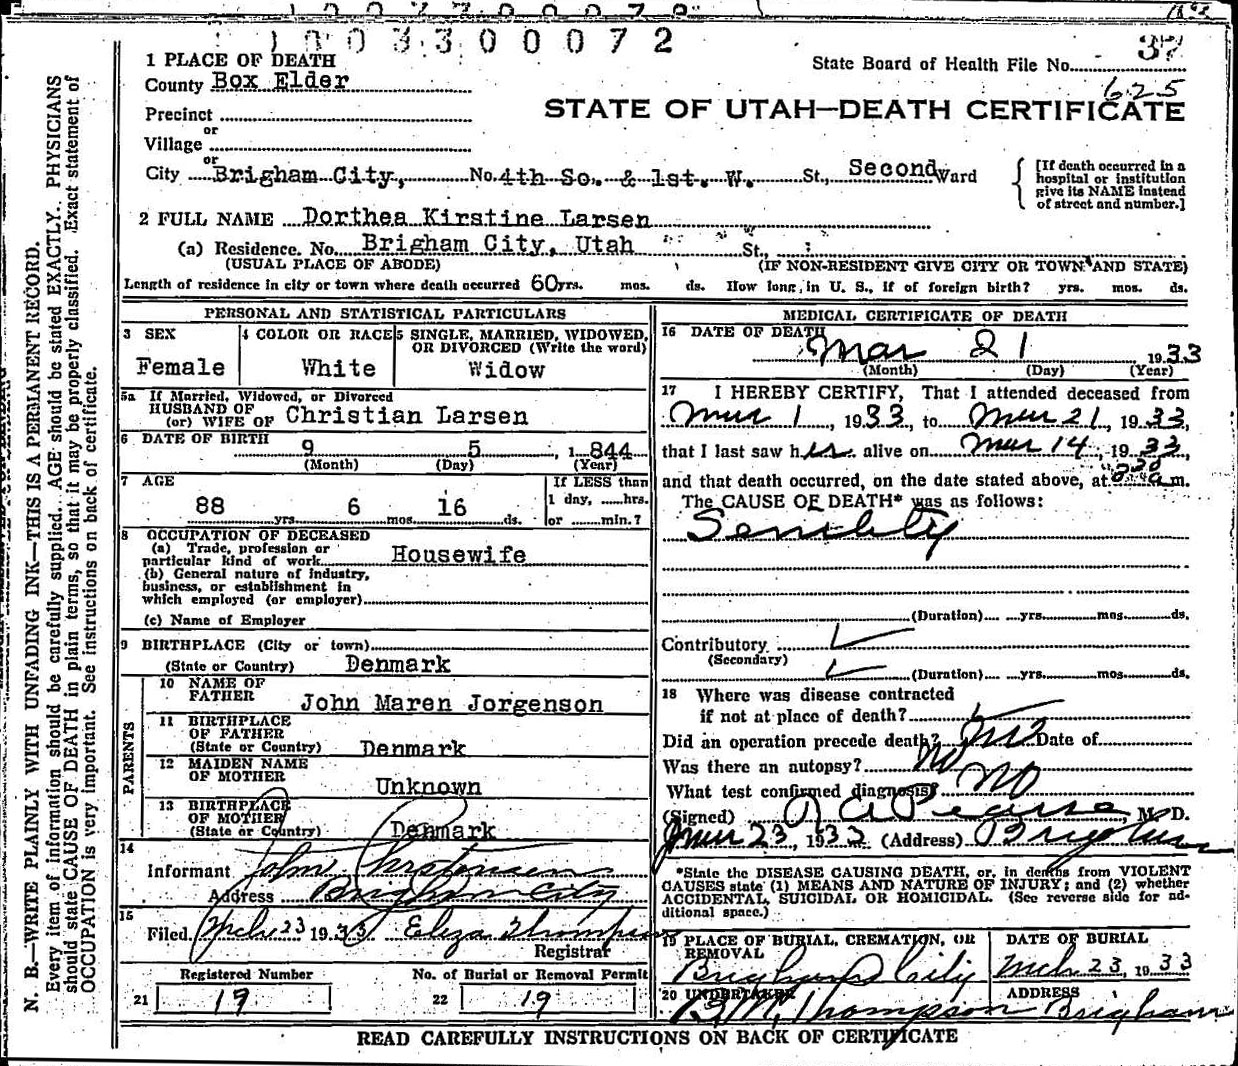 1003300072
37
State Board of Health File No.
625
STATE OF UTAH—DEATH CERTIFICATE
1 PLACE OF DEATH
County Box Elder
Precinct
or
Village
or
City Brigham City, No. 4th So. & 1st. W. St., Second Ward
[If death occurred in a
hospital or institution
give its NAME instead
of street and number.]
2 FULL NAME Dorthea Kirstine Larsen
(a) Residence. No. Brigham City, Utah St.,
(USUAL PLACE OF ABODE) (IF NON-RESIDENT GIVE CITY OR TOWN AND STATE)
Length of residence in city or town where death occurred 60 yrs. mos. ds. How long in U. S., if of foreign birth? yrs. mos. ds.
PERSONAL AND STATISTICAL PARTICULARS
3 SEX
Female
4 COLOR OR RACE
White
5 SINGLE, MARRIED, WIDOWED,
OR DIVORCED (Write the word)
Widow
5a If Married, Widowed, or Divorced
HUSBAND OF
(or) WIFE OF Christian Larsen
6 DATE OF BIRTH
9 5 , 1844
(Month) (Day) (Year)
7 AGE
88 yrs. 6 mos. 16 ds.
If LESS than
1 day, ......hrs.
or .......min.?
8 OCCUPATION OF DECEASED
(a) Trade, profession or
particular kind of work Housewife
(b) General nature of industry,
business, or establishment in
which employed (or employer)
(c) Name of Employer
9 BIRTHPLACE (City or town)
(State or Country) Denmark
PARENTS
10 NAME OF
FATHER John Maren Jorgenson
11 BIRTHPLACE
OF FATHER
(State or Country) Denmark
12 MAIDEN NAME
OF MOTHER Unknown
13 BIRTHPLACE
OF MOTHER
(State or Country) Denmark
14
Informant John Christensen
Address Brigham City
15
Filed Mch 23 1933 Eliza Thompson
Registrar
Registered Number
21 19
No. of Burial or Removal Permit
22 19
MEDICAL CERTIFICATE OF DEATH
16 DATE OF DEATH
Mar 21 1933
(Month) (Day) (Year)
17 I HEREBY CERTIFY, That I attended deceased from
Mar 1, 1933, to Mar 21, 1933,
that I last saw her alive on Mar 14, 1933,
and that death occurred, on the date stated above, at a.m.
The CAUSE OF DEATH* was as follows:
Senility
(Duration) yrs. mos. ds.
Contributory
(Secondary)
(Duration) yrs. mos. ds.
18 Where was disease contracted
if not at place of death?
Did an operation precede death? No Date of
Was there an autopsy? No
What test confirmed diagnosis? No
(Signed) R A Pearse M. D.
Mar 23, 1933 (Address) Brigham
*State the DISEASE CAUSING DEATH, or, in deaths from VIOLENT
CAUSES state (1) MEANS AND NATURE OF INJURY; and (2) whether
ACCIDENTAL, SUICIDAL OR HOMICIDAL. (See reverse side for ad-
ditional space.)
19 PLACE OF BURIAL, CREMATION, OR
REMOVAL
Brigham City
DATE OF BURIAL
Mch 23, 1933
20 UNDERTAKER
B. M. Thompson
ADDRESS
Brigham
READ CAREFULLY INSTRUCTIONS ON BACK OF CERTIFICATE
N. B.—WRITE PLAINLY WITH UNFADING INK—THIS IS A PERMANENT RECORD.
Every item of information should be carefully supplied. AGE should be stated EXACTLY. PHYSICIANS
should state CAUSE OF DEATH in plain terms, so that it may be properly classified. Exact statement of
OCCUPATION is very important. See instructions on back of certificate.